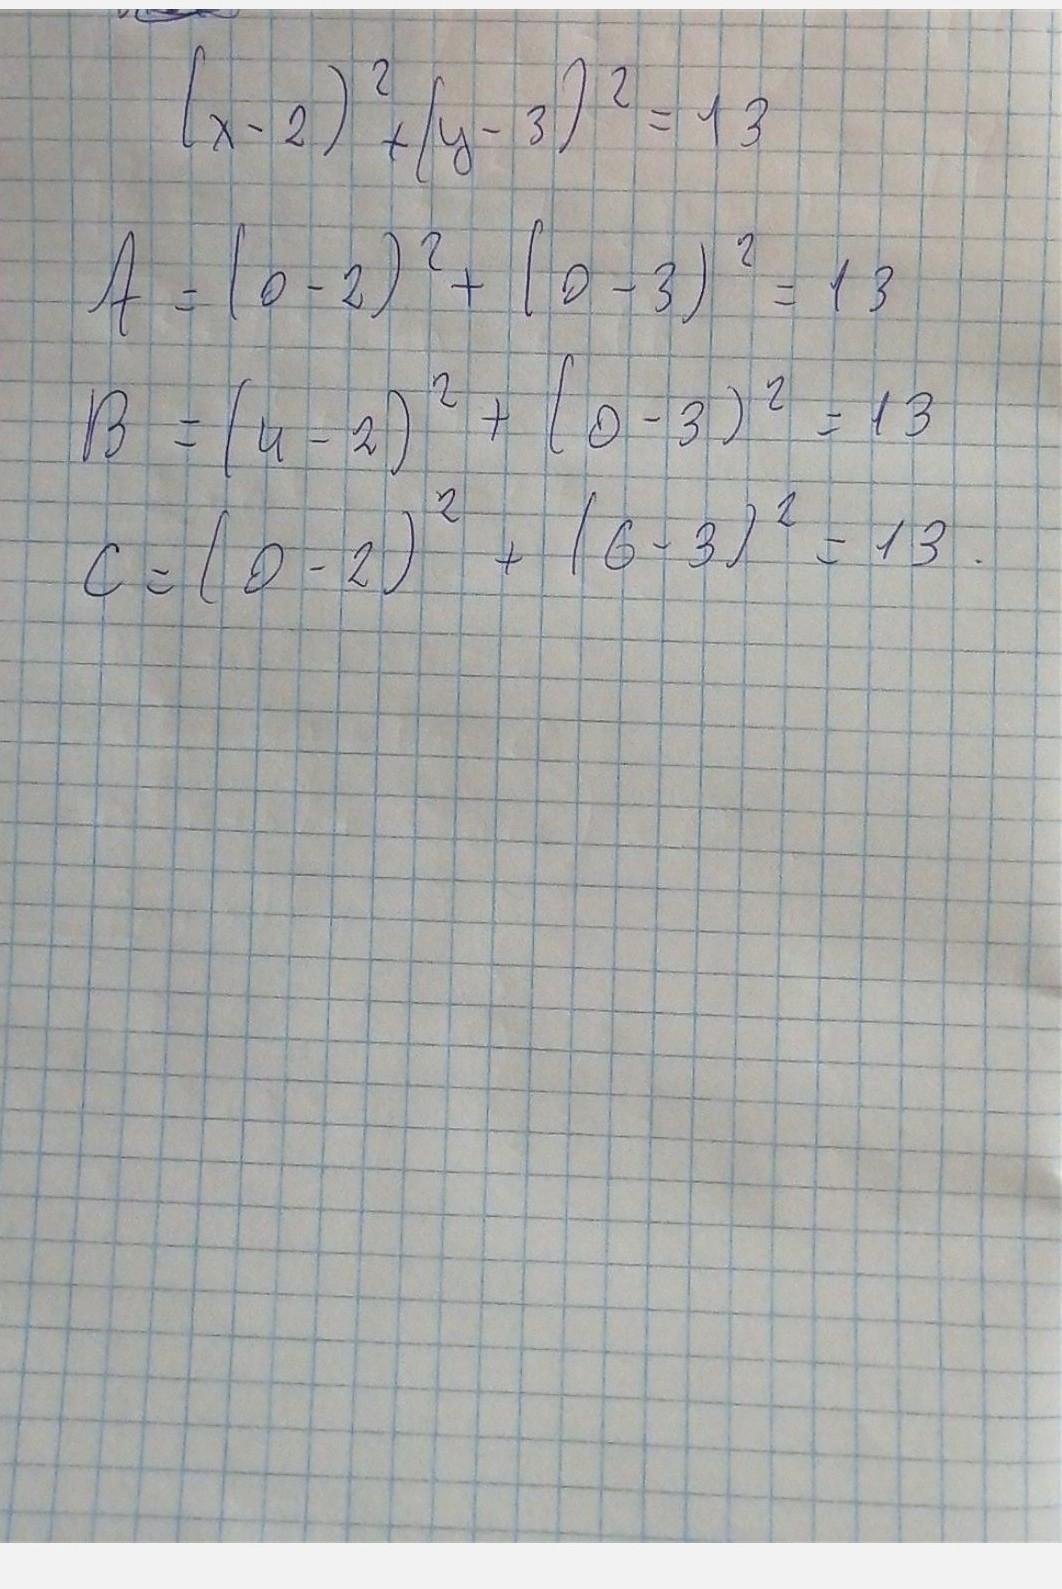 (x-2)² + (y-3)² = 13
A = (0-2)² + (0-3)² = 13
B = (4-2)² + (0-3)² = 13
C = (0-2)² + (6-3)² = 13.